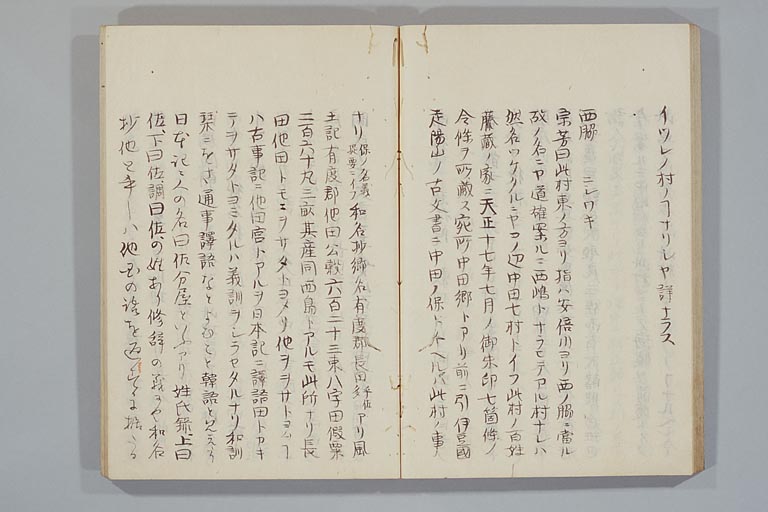 イツレノ村ノ了ナリシヤ詳ナラス
西脇 ニシワキ
宗芳曰此村東ノ方ヨリ指ハ安倍川ヨリ西ノ脇ニ當ル
故ノ名ニヤ道確案ルニ西嶋トナラヒテアル村ナレハ
彼名ツケタルニヤコノ辺中田七村トイフ此村ノ百姓
藤蔵ノ家ニ天正十七年七月ノ御朱印七箇條ノ
令條ヲ所蔵ス宛所中田郷トアリ前ニ引伊豆國
走湯山ノ古文書ニ中田ノ保トイヘルハ此村ノ事
ナリ 保ノ名義 和名抄郷名有度郡長田 アリ風
土記有度郡他田公穀六百二十三束八字田假粟
二百六十九三畝其産同西島トアルモ此所ナリ長
田他田トモニヲサタトヨメリ他ヲヲサトヨム了
ハ古事記ニ他田宮トアルヲ日本記ニ譯語田トカキ
テヲサダトヨミタルハ義訓ヲシラセタルナリ和訓
栞にをさ通事譯語なとよむこと韓語と見えたり
日本記に人の名曰佐分屋といふあり姓氏録上曰
佐下曰佐調曰佐の姓あり 和名
抄他と